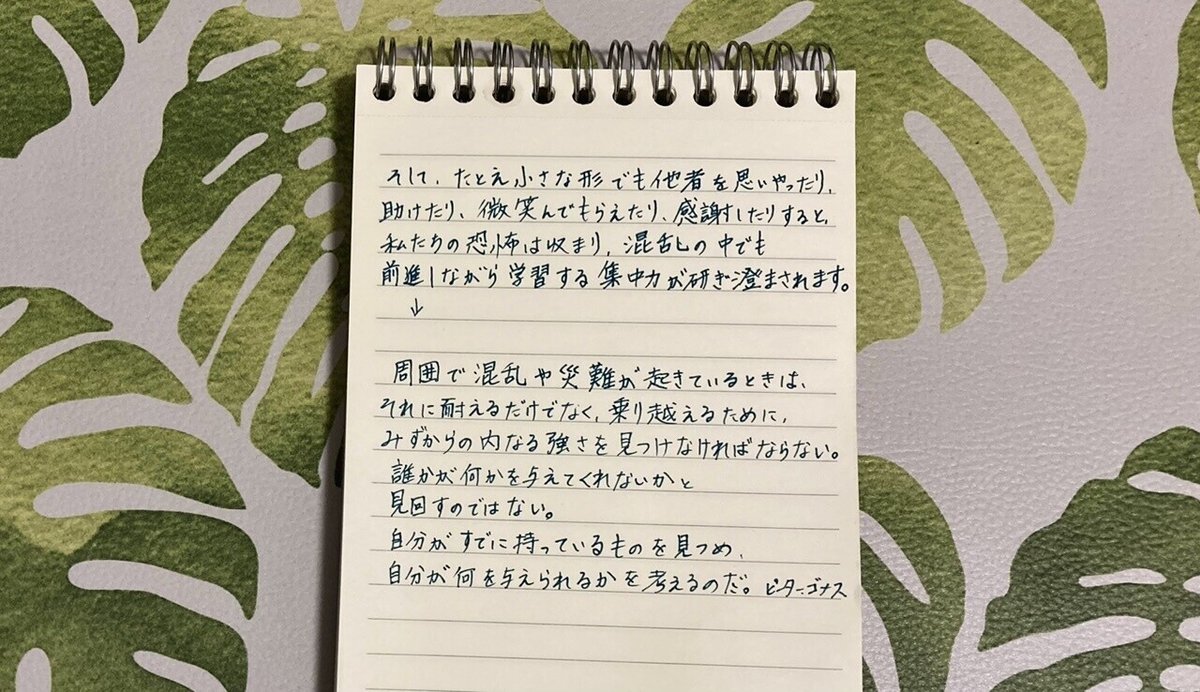 そして、たとえ小さな形でも他者を思いやったり、
助けたり、微笑んでもらえたり、感謝したりすると、
私たちの恐怖は収まり、混乱の中でも
前進しながら学習する集中力が研ぎ澄まされます。
↓
周囲で混乱や災難が起きているときは、
それに耐えるだけでなく、乗り越えるために、
みずからの内なる強さを見つけなければならない。
誰かが何かを与えてくれないかと
見回すのではない。
自分がすでに持っているものを見つめ、
自分が何を与えられるかを考えるのだ。ピーター・ゴナス